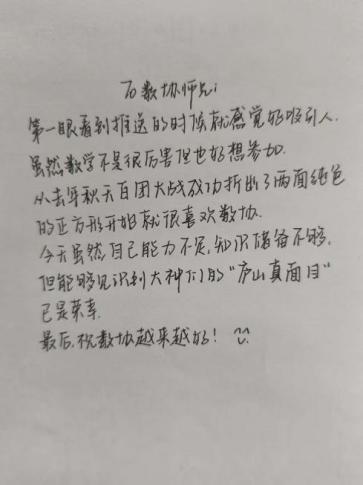 致数协师兄:
第一眼看到推送的时候就感觉好吸引人.
虽然数学不是很厉害但也好想参加.
从去年秋天百团大战成功折出了两面纯色
的正方形开始就很喜欢数协.
今天虽然自己能力不足,知识储备不够,
但能够见识到大神们的“庐山真面目”
已是荣幸.
最后,祝数协越来越好!